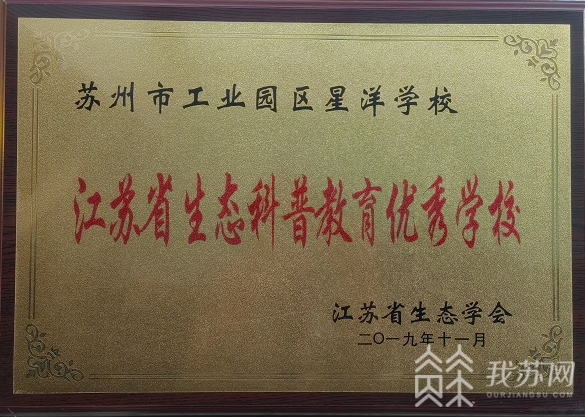 苏州市工业园区星洋学校
江苏省生态科普教育优秀学校
江苏省生态学会
二〇一九年十一月
我苏网
OURJIANGSU.COM